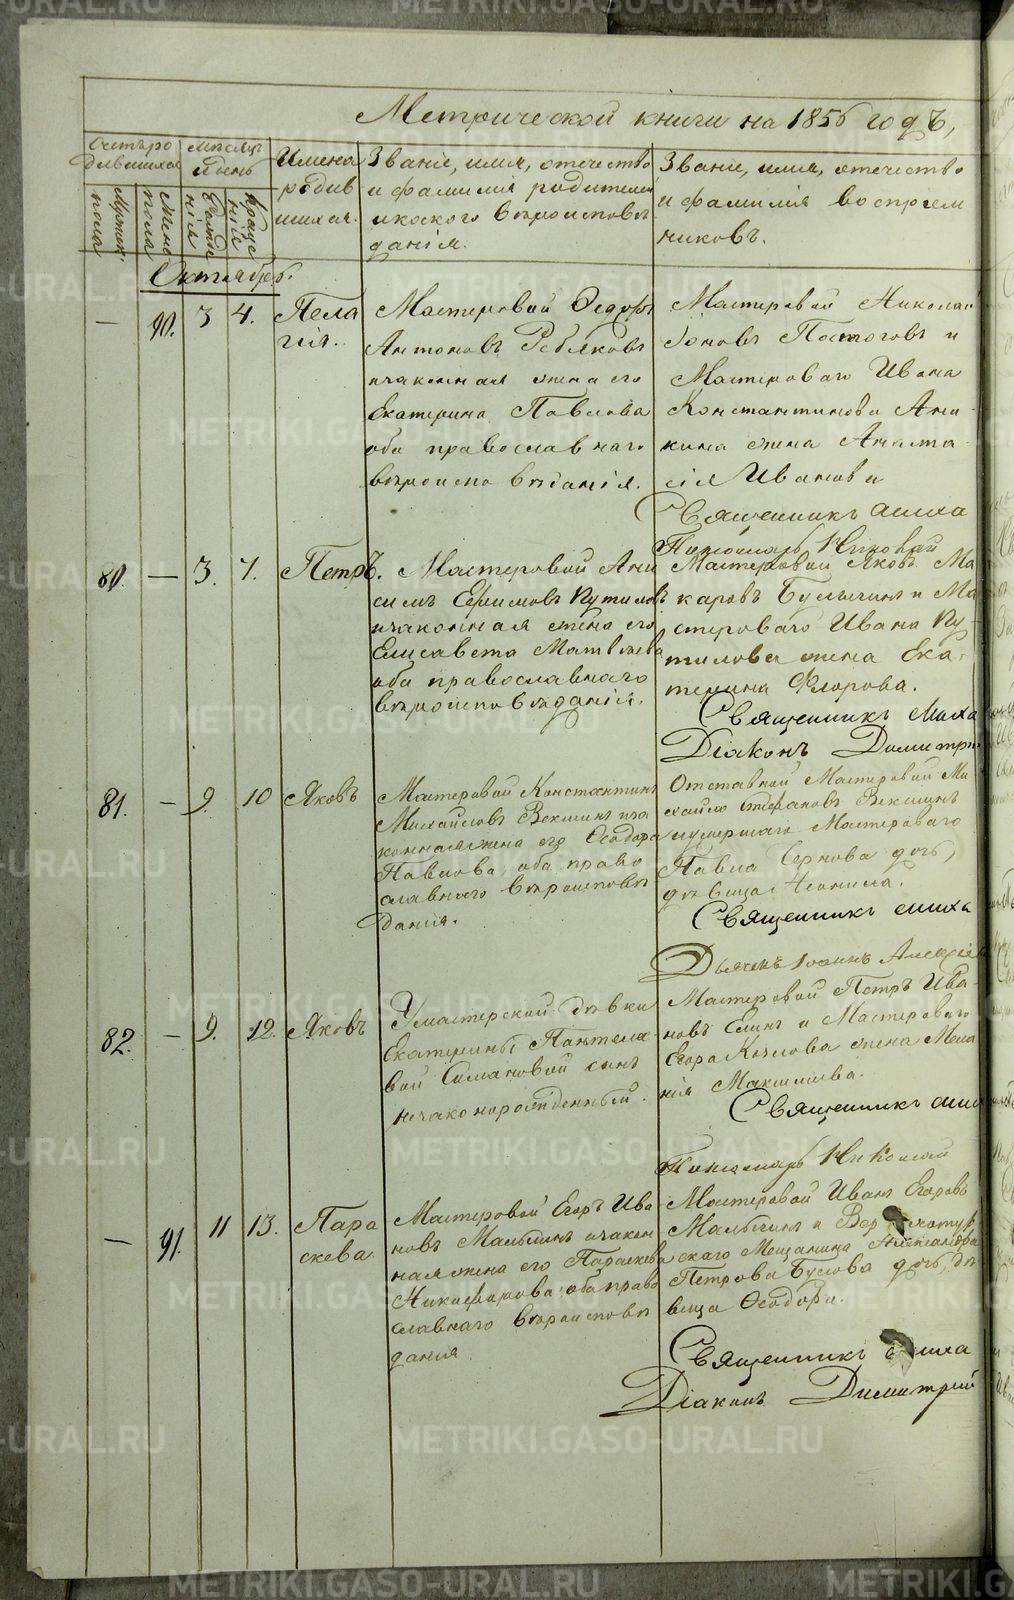 Метрической книги на 1856 годъ,
Счетъ ро
дившихся
Мужеск. пола
Женс. пола
Месяцъ
и день
Рожде
нія
Креще
нія
Имена
родив
шихся.
Званіе, имя, отечество
и фамилія родителей
и коего вероисповѣ
данія.
Званіе, имя, отечество
и фамилія воспріем
никовъ.
Октябрь.
— 90. 3 4.
Пела
гія.
Мастеровой Ѳедоръ
Антоновъ
изаконная жена его
Екатерина Павлова
оба православнаго
вѣроисповѣданія.
Мастеровой Николай
Іоновъ и
Мастероваго Ивана
Константинова Ани
кина жена Анаста
сія Иванова
Священникъ Миха
Пономарь Николай
80. — 3. 7.
Петръ.
Мастеровой Ани
симъ Ефимовъ Путиловъ
изаконная жена его
Елисавета Матвѣева
оба православнаго
вѣроисповѣданія.
Мастеровой Яковъ Ма
каровъ и Ма
стероваго Ивана Пу
тилова жена Ека
терина Флорова.
Священникъ Миха
Діаконъ Димитрій
81. — 9. 10
Яковъ
Мастеровой Константинъ
Михайловъ Векшинъ иза
конная жена его Ѳеодора
Павлова, оба право
славнаго вѣроисповѣ
данія.
Отставной Мастеровой Ми
хайло Стефановъ Векшинъ
иумершаго Мастероваго
Павла Чернова дочь,
дѣвица Неонила.
Священникъ Миха
Дьячекъ Іоаннъ Алексѣев
82. — 9. 12.
Яковъ
Умастерской дѣвки
Екатерины Пантелѣ
вой Симановой сынъ
незаконорожденный.
Мастеровой Петръ Ива
новъ Елинъ и Мастероваго
Егора Козлова жена Мела
нія Максимова.
Священникъ Миха
Пономарь Николай
— 91. 11 13.
Пара
скева.
Мастеровой Егоръ Ива
новъ Малыгинъ изакон
ная жена его Параскева
Никифорова, оба право
славнаго вѣроисповѣ
данія
Мастеровой Иванъ Егоровъ
Малыгинъ и Верхотур
скаго Мещанина Александра
Петрова дочь, дѣ
вица Ѳеодора.
Священникъ Миха
Діаконъ Димитрій
METRIKI.GASO-URAL.RU